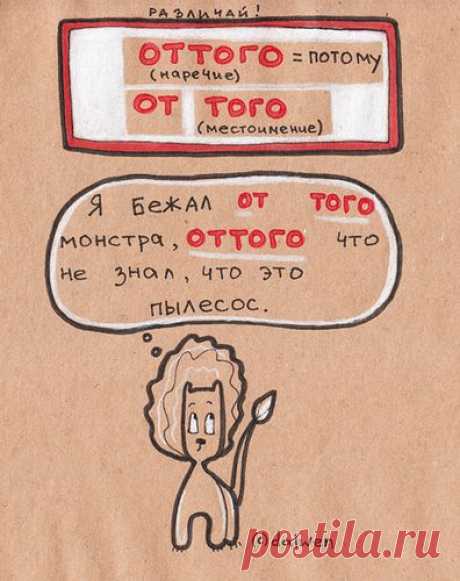 РАЗЛИЧАЙ!
ОТТОГО = ПОТОМУ
(наречие)
ОТ ТОГО
(местоимение)
Я БЕЖАЛ ОТ ТОГО
монстра, ОТТОГО что
не знал, что это
пылесос.
postila.ru